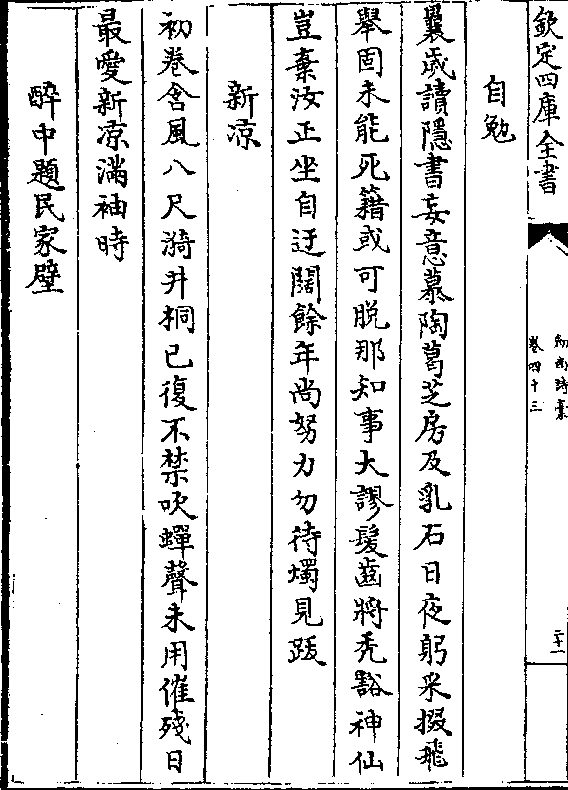 欽定四庫全書
劒南詩藁
卷四十三
二十一
自勉
曩歲讀隱書妄意慕陶葛芝房及乳石日夜躬采掇飛
舉固未能死籍或可脫那知事大謬髮齒將禿豁神仙
豈棄汝正坐自迂闊餘年尚努力勿待燭見跋
新凉
初卷含風八尺漪井桐已復不禁吹蟬聲未用催殘日
最愛新凉滿袖時
醉中題民家壁